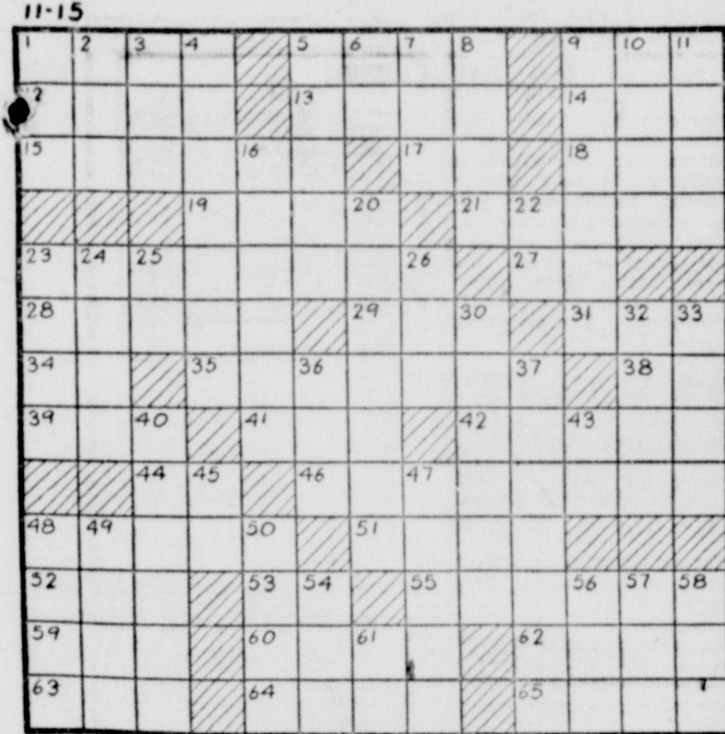 11-15
1 2 3 4 5 6 7 8 9 10 11
2 13 14
15 16 17 18
19 20 21 22
23 24 25 26 27
28 29 30 31 32 33
34 35 36 37 38
39 40 41 42 43
44 45 46 47
48 49 50 51
52 53 54 55 56 57 58
59 60 61 62
63 64 65